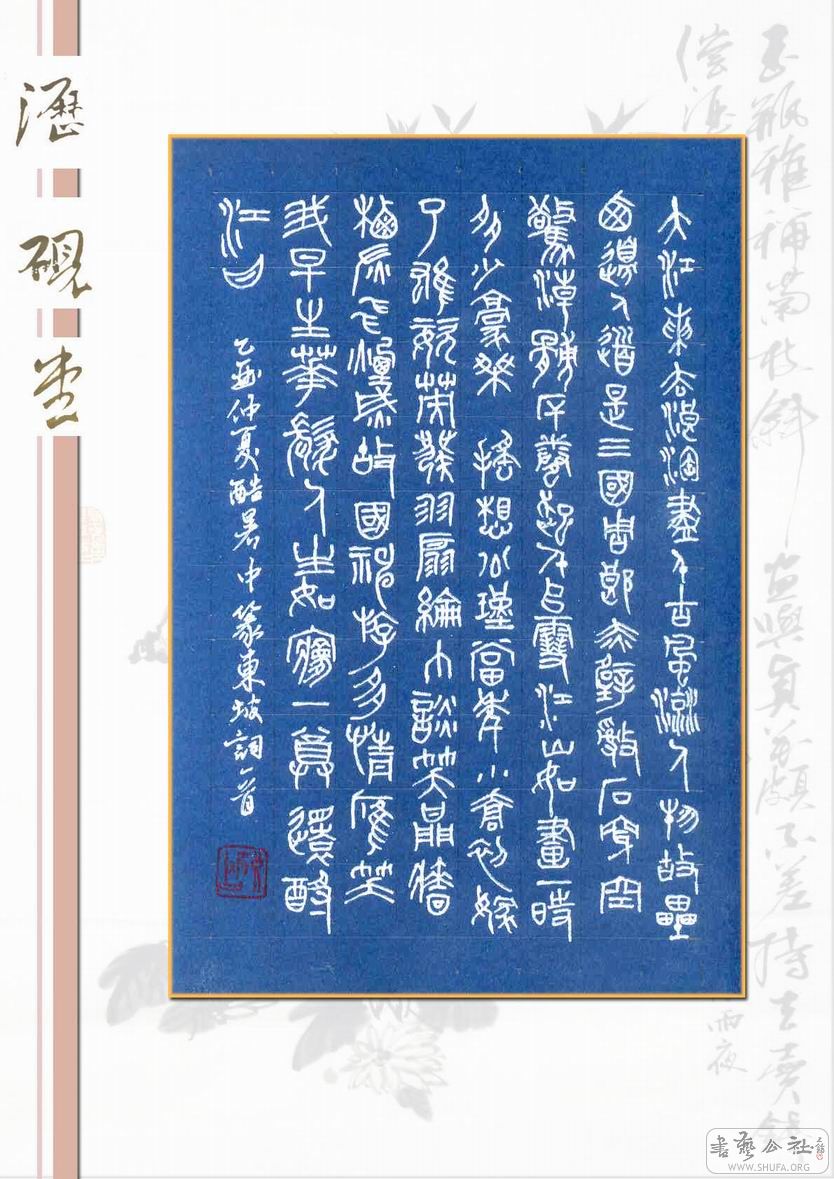 瀝硯堂
大江東去浪淘盡千古風流人物故壘
西邊人道是三國周郎赤壁亂石穿空
驚濤拍岸卷起千堆雪江山如畫一時
多少豪傑 遙想公瑾當年小喬初嫁
了雄姿英發羽扇綸巾談笑間檣
櫓灰飛煙滅故國神游多情應笑
我早生華髮人生如夢一尊還酹
江月
乙酉仲夏酷暑中篆東坡詞一首
玉瓶雅稱菊枝斜
雨夜
書藝公社
WWW.SHUFA.ORG